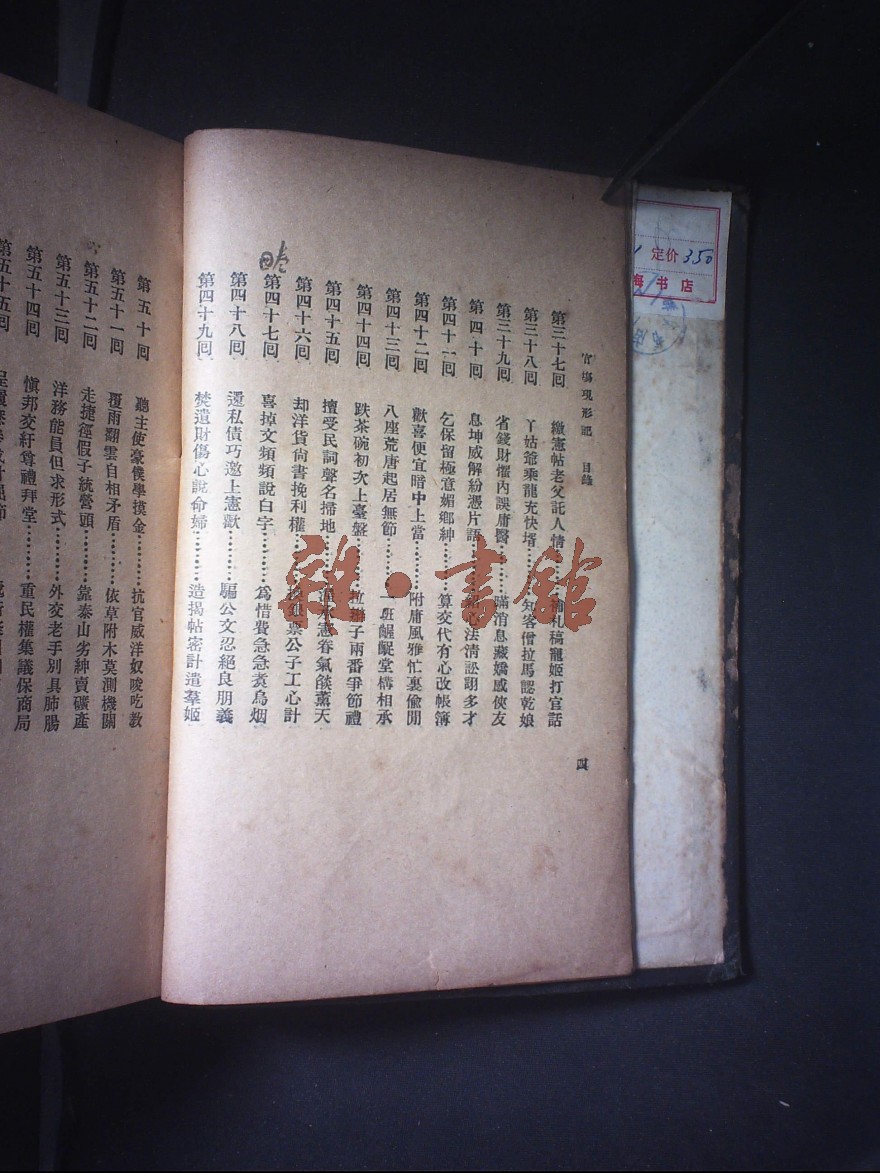 官場現形記 目錄
第三十七回 繳憲帖老父託人情……補札稿寵姬打官話
第三十八回 丫姑爺乘龍充快壻……知客僧拉馬認乾娘
第三十九回 省錢財懼內誤庸醫……瞞消息藏嬌感俠友
第四十回 息坤威解紛憑片語……心法清訟詡多才
第四十一回 乞保留極意媚鄉紳……算交代有心改帳簿
第四十二回 歡喜便宜暗中上當……附庸風雅忙裏偷閒
第四十三回 八座荒唐起居無節……一班齷齪堂構相承
第四十四回 跌茶碗初次上臺盤……拉辮子兩番爭節禮
第四十五回 擅受民詞聲名掃地……憲眷氣燄薰天
第四十六回 却洋貨尙書挽利權……銀票公子工心計
第四十七回 喜掉文頻頻說白字……爲惜費急急煑烏烟
第四十八回 還私債巧邀上憲歡……騙公文忍絕良朋義
第四十九回 焚遺財傷心說命婦……造揭帖密計遣羣姬
四
第五十回 聽主使豪僕學摸金……抗官威洋奴唆吃教
第五十一回 覆雨翻雲自相矛盾……依草附木莫測機關
第五十二回 走捷徑假子統營頭……靠泰山劣紳賣礦產
第五十三回 洋務能員但求形式……外交老手別具肺腸
第五十四回 愼邦交紆尊禮拜堂……重民權集議保商局
第五十五回
定价 350
海 书 店
雜·書館